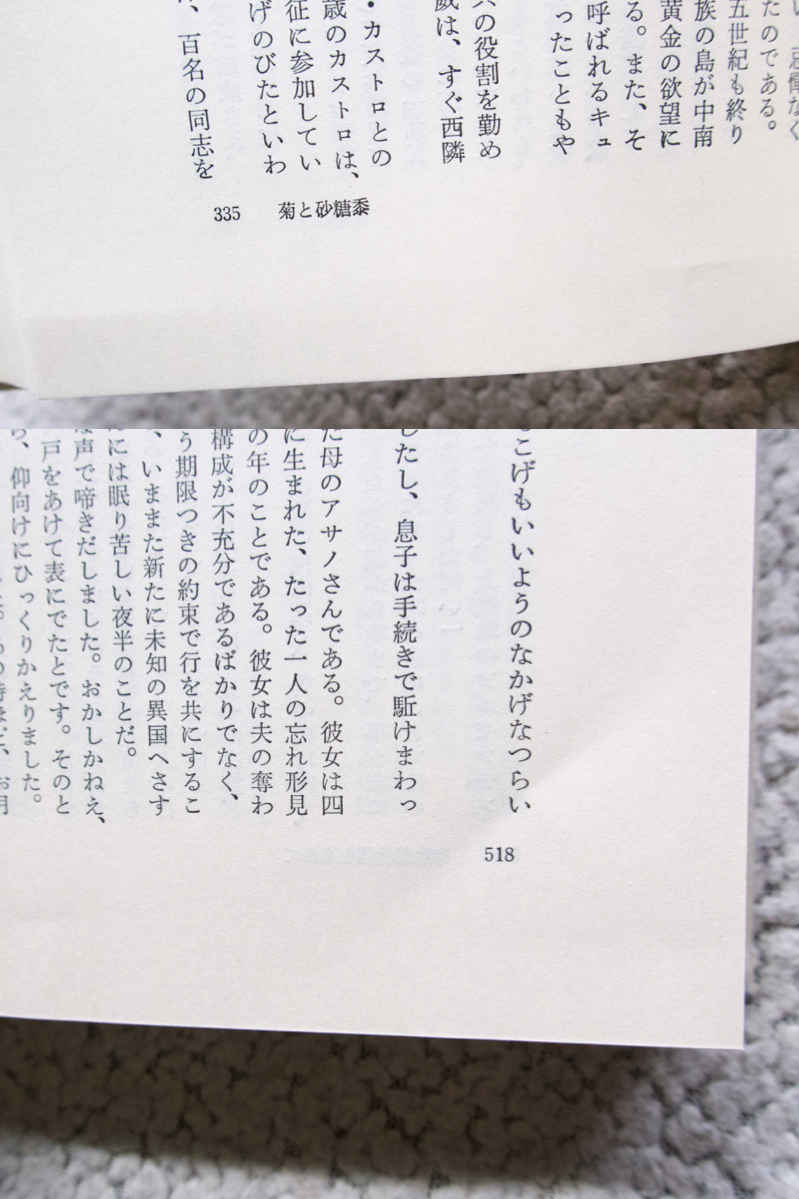 忌憚なく
たのである。
五世紀も終り
族の島が中南
黄金の欲望に
る。また、そ
呼ばれるキュ
ったこともや
の役割を勤め
は、すぐ西隣
・カストロとの
歳のカストロは、
征に参加してい
げのびたといわ
、百名の同志を
335 菊と砂糖黍
こげもいいようのなかげなつらい
したし、息子は手続きで駈けまわっ
た母のアサノさんである。彼女は四
に生まれた、たった一人の忘れ形見
の年のことである。彼女は夫の奪わ
構成が不充分であるばかりでなく、
う期限つきの約束で行を共にするこ
、いままた新たに未知の異国へさす
には眠り苦しい夜半のことだ。
な声で啼きだしました。おかしかねえ、
戸をあけて表にでたとです。そのと
ら、仰向けにひっくりかえりました。
518